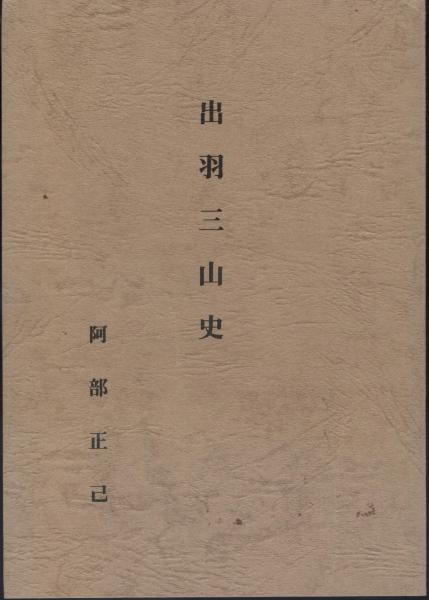 出羽三山史
阿部正己